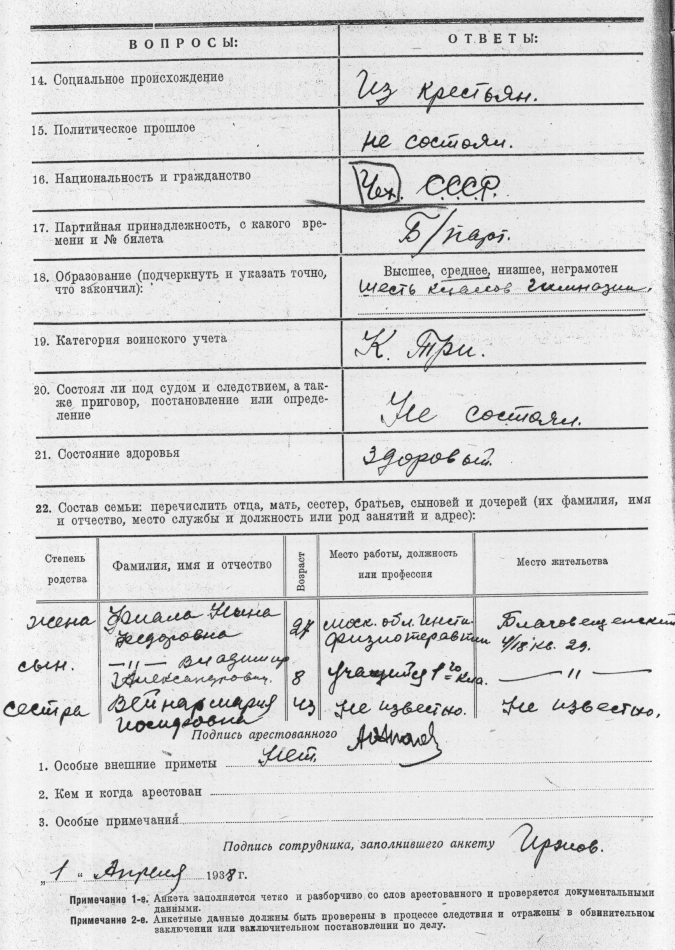 ВОПРОСЫ: ОТВЕТЫ:
14. Социальное происхождение Из крестьян.
15. Политическое прошлое не состоял.
16. Национальность и гражданство Чех. С.С.С.Р.
17. Партийная принадлежность, с какого вре-
мени и № билета Б/парт.
18. Образование (подчеркнуть и указать точно,
что закончил): Высшее, среднее, низшее, неграмотен
шесть классов гимназии.
19. Категория воинского учета К. Три.
20. Состоял ли под судом и следствием, а так-
же приговор, постановление или опреде-
ление Не состоял.
21. Состояние здоровья Здоровый.
22. Состав семьи: перечислить отца, мать, сестер, братьев, сыновей и дочерей (их фамилия, имя
и отчество, место службы и должность или род занятий и адрес):
Степень родства Фамилия, имя и отчество Возраст Место работы, должность или профессия Место жительства
жена Фиала Нина 27 моск. обл. инсти. Благовещенский
Федоровна физиотерапии 4/18 кв. 29.
сын. —"— Владимир
Александрович. 8 учащийся 1го кла. —"—
сестра Вейнар мария 43 Не известно. Не известно.
Иосифовна
Подпись арестованного
1. Особые внешние приметы Нет.
2. Кем и когда арестован
3. Особые примечания
Подпись сотрудника, заполнившего анкету
„1" Апреля 1938 г.
Примечание 1-е. Анкета заполняется четко и разборчиво со слов арестованного и проверяется документальными
данными.
Примечание 2-е. Анкетные данные должны быть проверены в процессе следствия и отражены в обвинительном
заключении или заключительном постановлении по делу.